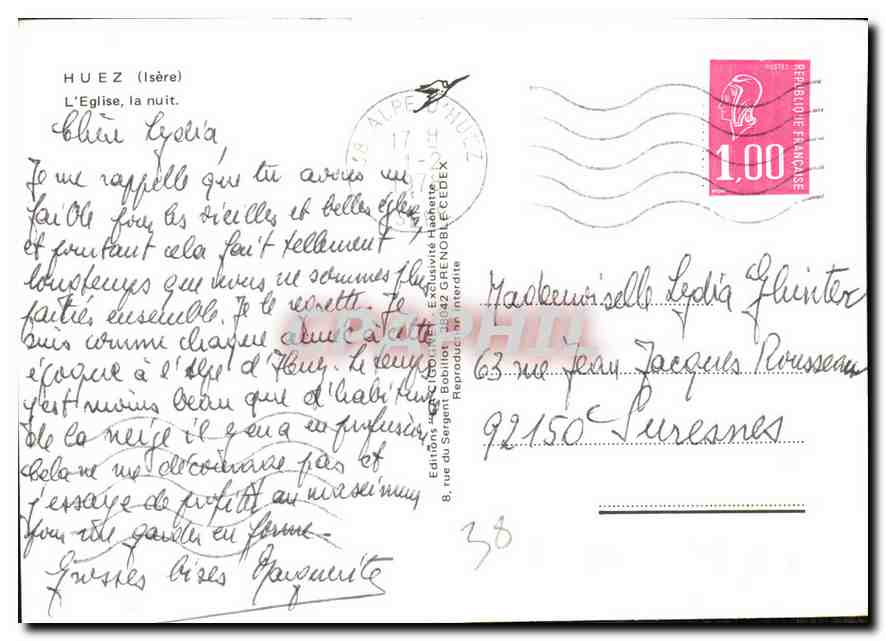 HUEZ (Isère)
L'Eglise, la nuit.
Chère Lydia,
Je me rappelle que tu avais un
faible pour les vieilles et belles églises,
et pourtant cela fait tellement
longtemps que nous ne sommes plus
parties ensemble. Je le regrette. Je
suis comme chaque année à cette
époque à l'alpe d'Huez. Le temps
est moins beau que d'habitude
de la neige il y en a en profusion
cela ne me décourage pas et
j'essaye de profiter au maximum
pour me garder en forme.
Grosses bises Marguerite
ALPE D'HUEZ
17 H
Editions "LA CIGOGNE" - Exclusivité Hachette
8, rue du Sergent Bobillot - 38042 GRENOBLE CEDEX
Reproduction interdite
POSTES
REPUBLIQUE FRANÇAISE
1,00
Mademoiselle Lydia Ghinter
63 rue Jean Jacques Rousseau
92150 Suresnes
38
CPAPHIL